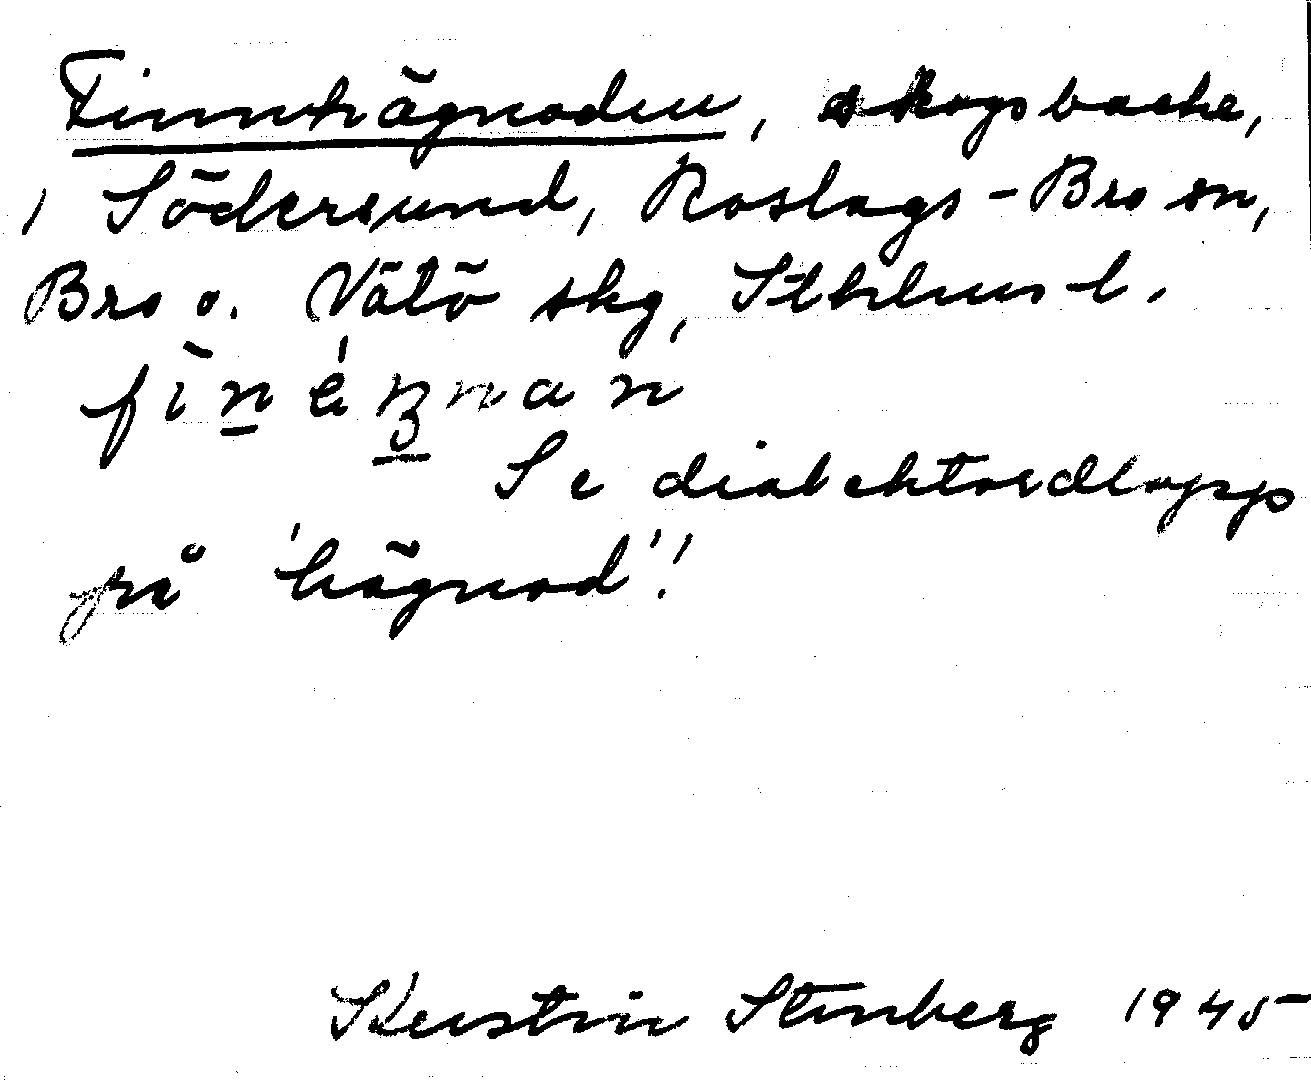 Finnhägnaden, skogsbacke,
i Södersund, Roslags-Bro sn,
Bro o. Vätö skg, Sthlms l.
Se dialektordlapp
på 'hägnad'!
Kerstin Stenberg 1945